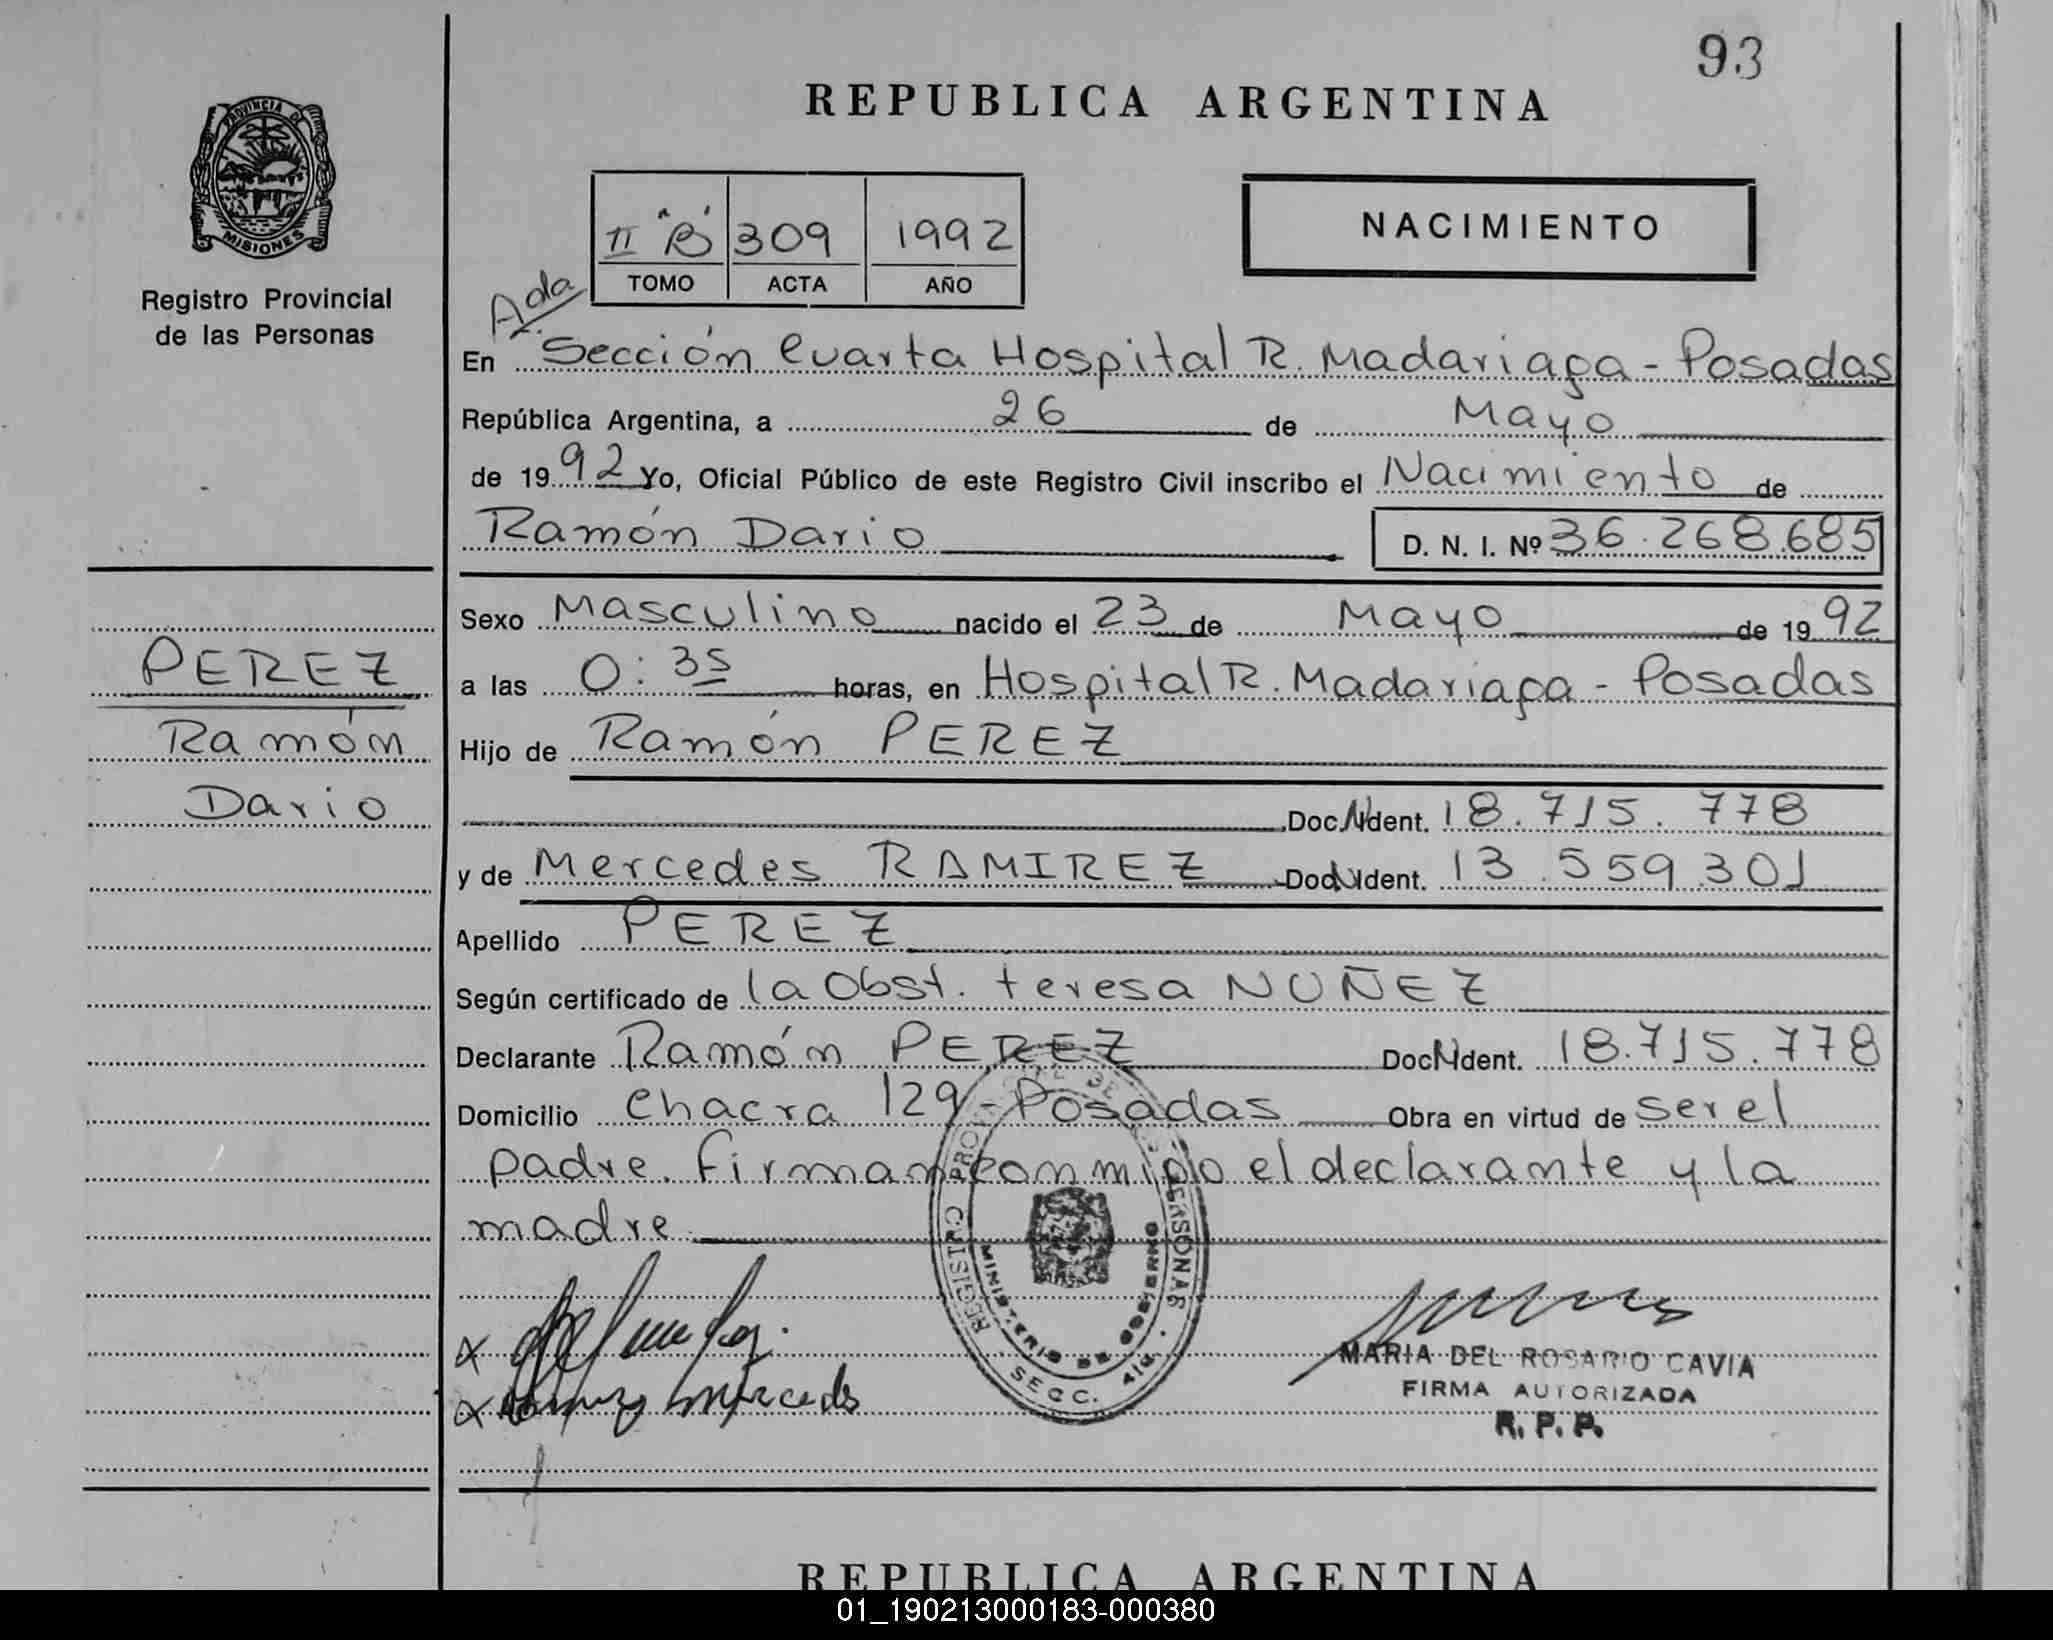 93
REPUBLICA ARGENTINA
PROVINCIA DE
MISIONES
Registro Provincial
de las Personas
II "B" 309 1992
TOMO ACTA AÑO
NACIMIENTO
Ada
En Sección Cuarta Hospital R. Madariaga - Posadas
República Argentina, a 26 de Mayo
de 1992 Yo, Oficial Público de este Registro Civil inscribo el Nacimiento de
Ramón Dario D. N. I. Nº 36.268.685
Sexo Masculino nacido el 23 de Mayo de 1992
PEREZ
a las 0:35 horas, en Hospital R. Madariaga - Posadas
Ramón
Hijo de Ramón PEREZ
Dario
Doc. N Ident. 18.715.778
y de Mercedes RAMIREZ Doc. N Ident. 13.559.301
Apellido PEREZ
Según certificado de la Obst. teresa NUÑEZ
Declarante Ramón PEREZ Doc N Ident. 18.715.778
Domicilio Chacra 129 - Posadas Obra en virtud de ser el
padre. Firman conmigo el declarante y la
madre
REGISTRO PROVINCIAL DE LAS PERSONAS
MINISTERIO DE GOBIERNO
SECC. 4ta.
x
x Mercedes
MARIA DEL ROSARIO CAVIA
FIRMA AUTORIZADA
R. P. P.
REPUBLICA ARGENTINA
01_190213000183-000380